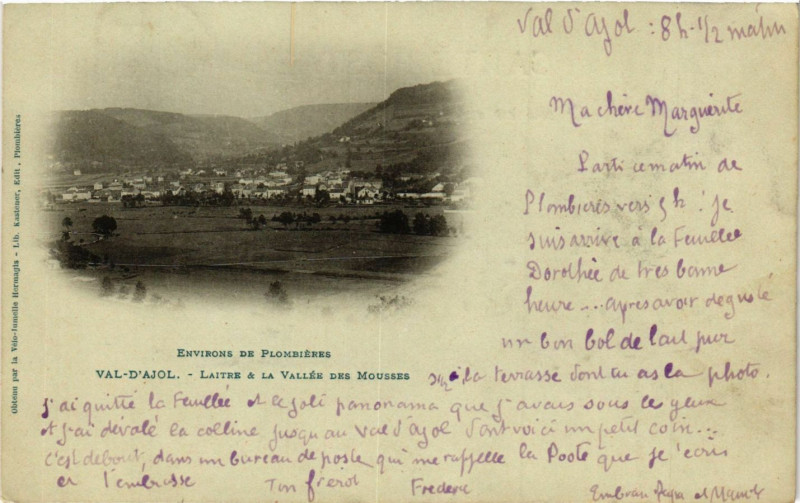 Val d'Ajol : 8h-1/2 matin
Ma chère Marguerite
Parti ce matin de
Plombières vers 5h ! je
suis arrivé à la Feuillée
Dorothée de très bonne
heure ... après avoir dégusté
un bon bol de lait pur
Environs de Plombières
VAL-D'AJOL. - Laitre & la Vallée des Mousses
sur la terrasse dont tu as la photo.
j'ai quitté la Feuillée et le joli panorama que j'avais sous les yeux
et j'ai dévalé la colline jusqu'au Val d'Ajol dont voici un petit coin...
c'est debout, dans un bureau de poste qui me rappelle la Poste que je t'écris
et t'embrasse
Ton frérot Frédéric
Obtenu par la Vélo-Jumelle Hermagis - Lib. Kastener, Edit, Plombières